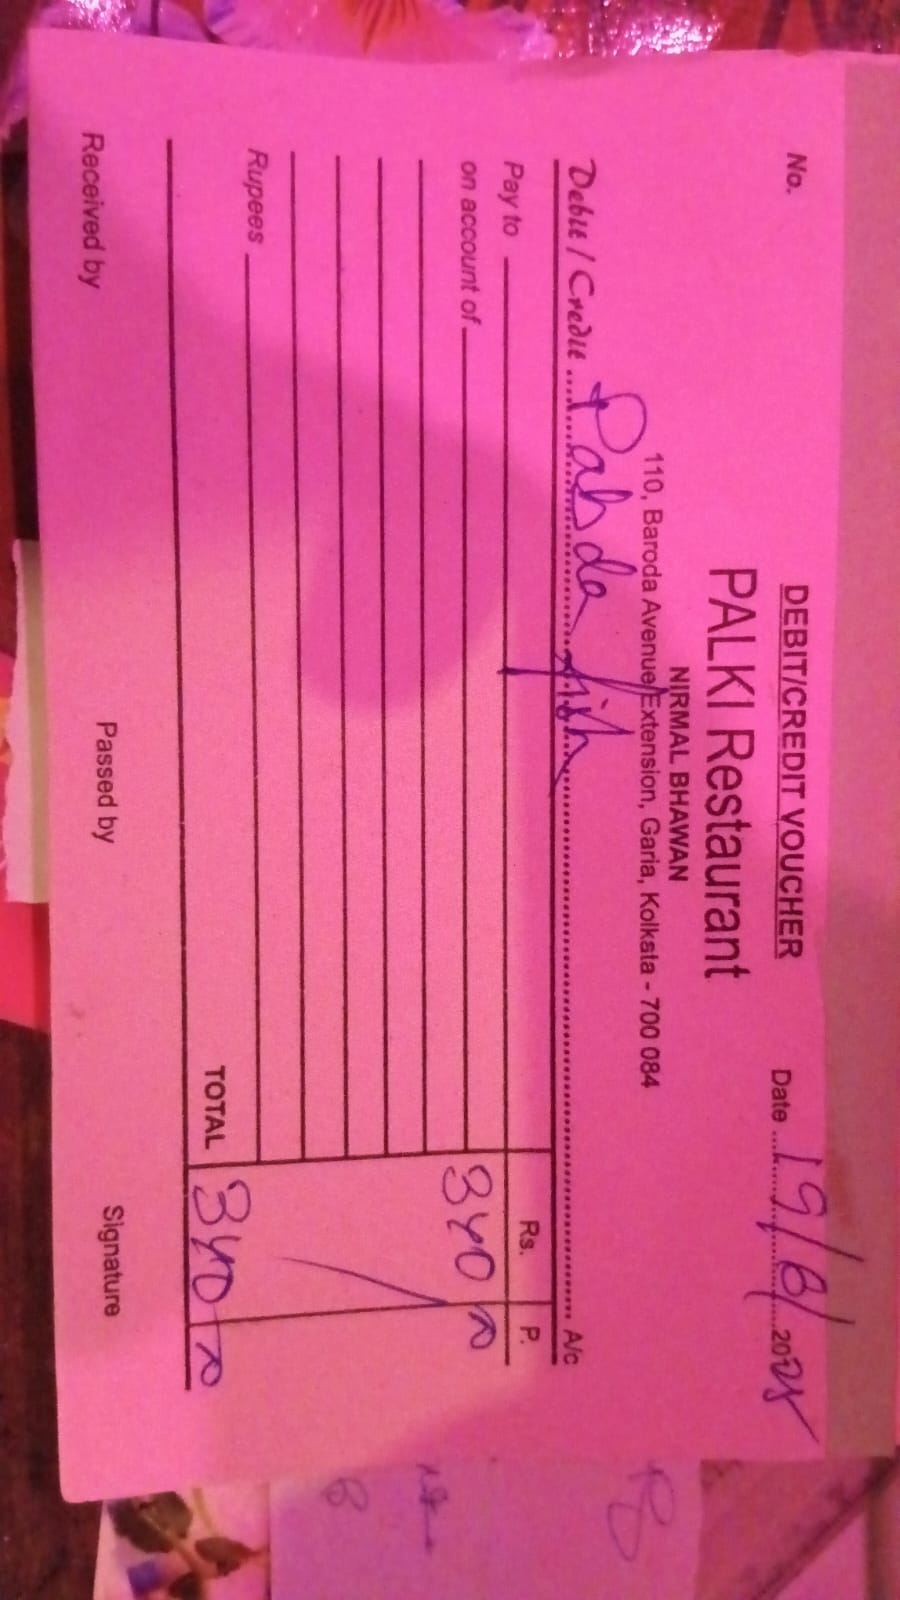 DEBIT/CREDIT VOUCHER
No.
PALKI Restaurant
Date 19/8/2025
NIRMAL BHAWAN
110, Baroda Avenue Extension, Garia, Kolkata - 700 084
Debit / Credit Pabda fish A/c
Pay to
Rs. P.
on account of
340
Rupees
TOTAL 340
Received by Passed by Signature